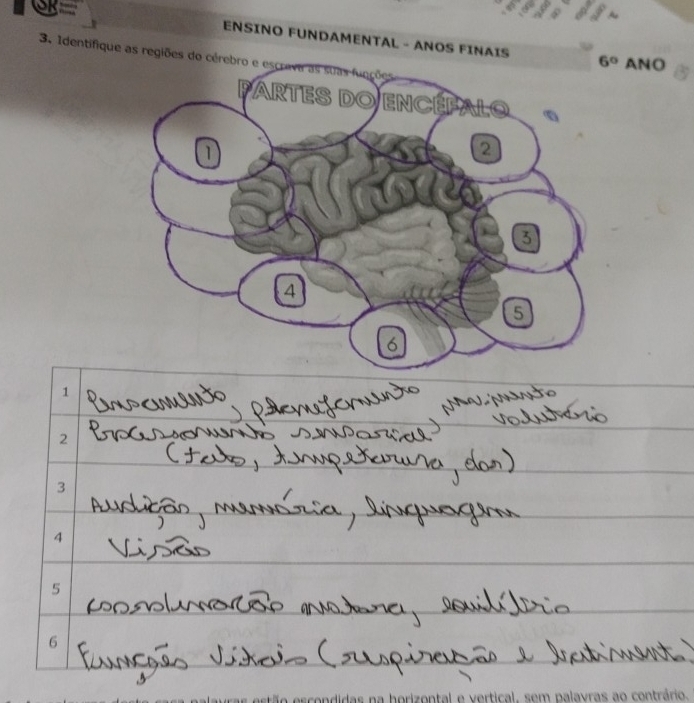 ENSINO FUNDAMENTAL - ANOS FINAIS
6º ANO
3. Identifique as regiões do cérebro e escreva as suas funções.
PARTES DO ENCÉFALO
1
2
3
4
5
6
1 Pensamento, planejamento, movimento
voluntário
2 Processamento sensorial
(tato, temperatura, dor)
3 Audição, memória, linguagem
4 Visão
5 coordenação motora, equilíbrio
6 Funções vitais (respiração e batimento)
palavras estão escondidas na horizontal e vertical, sem palavras ao contrário.